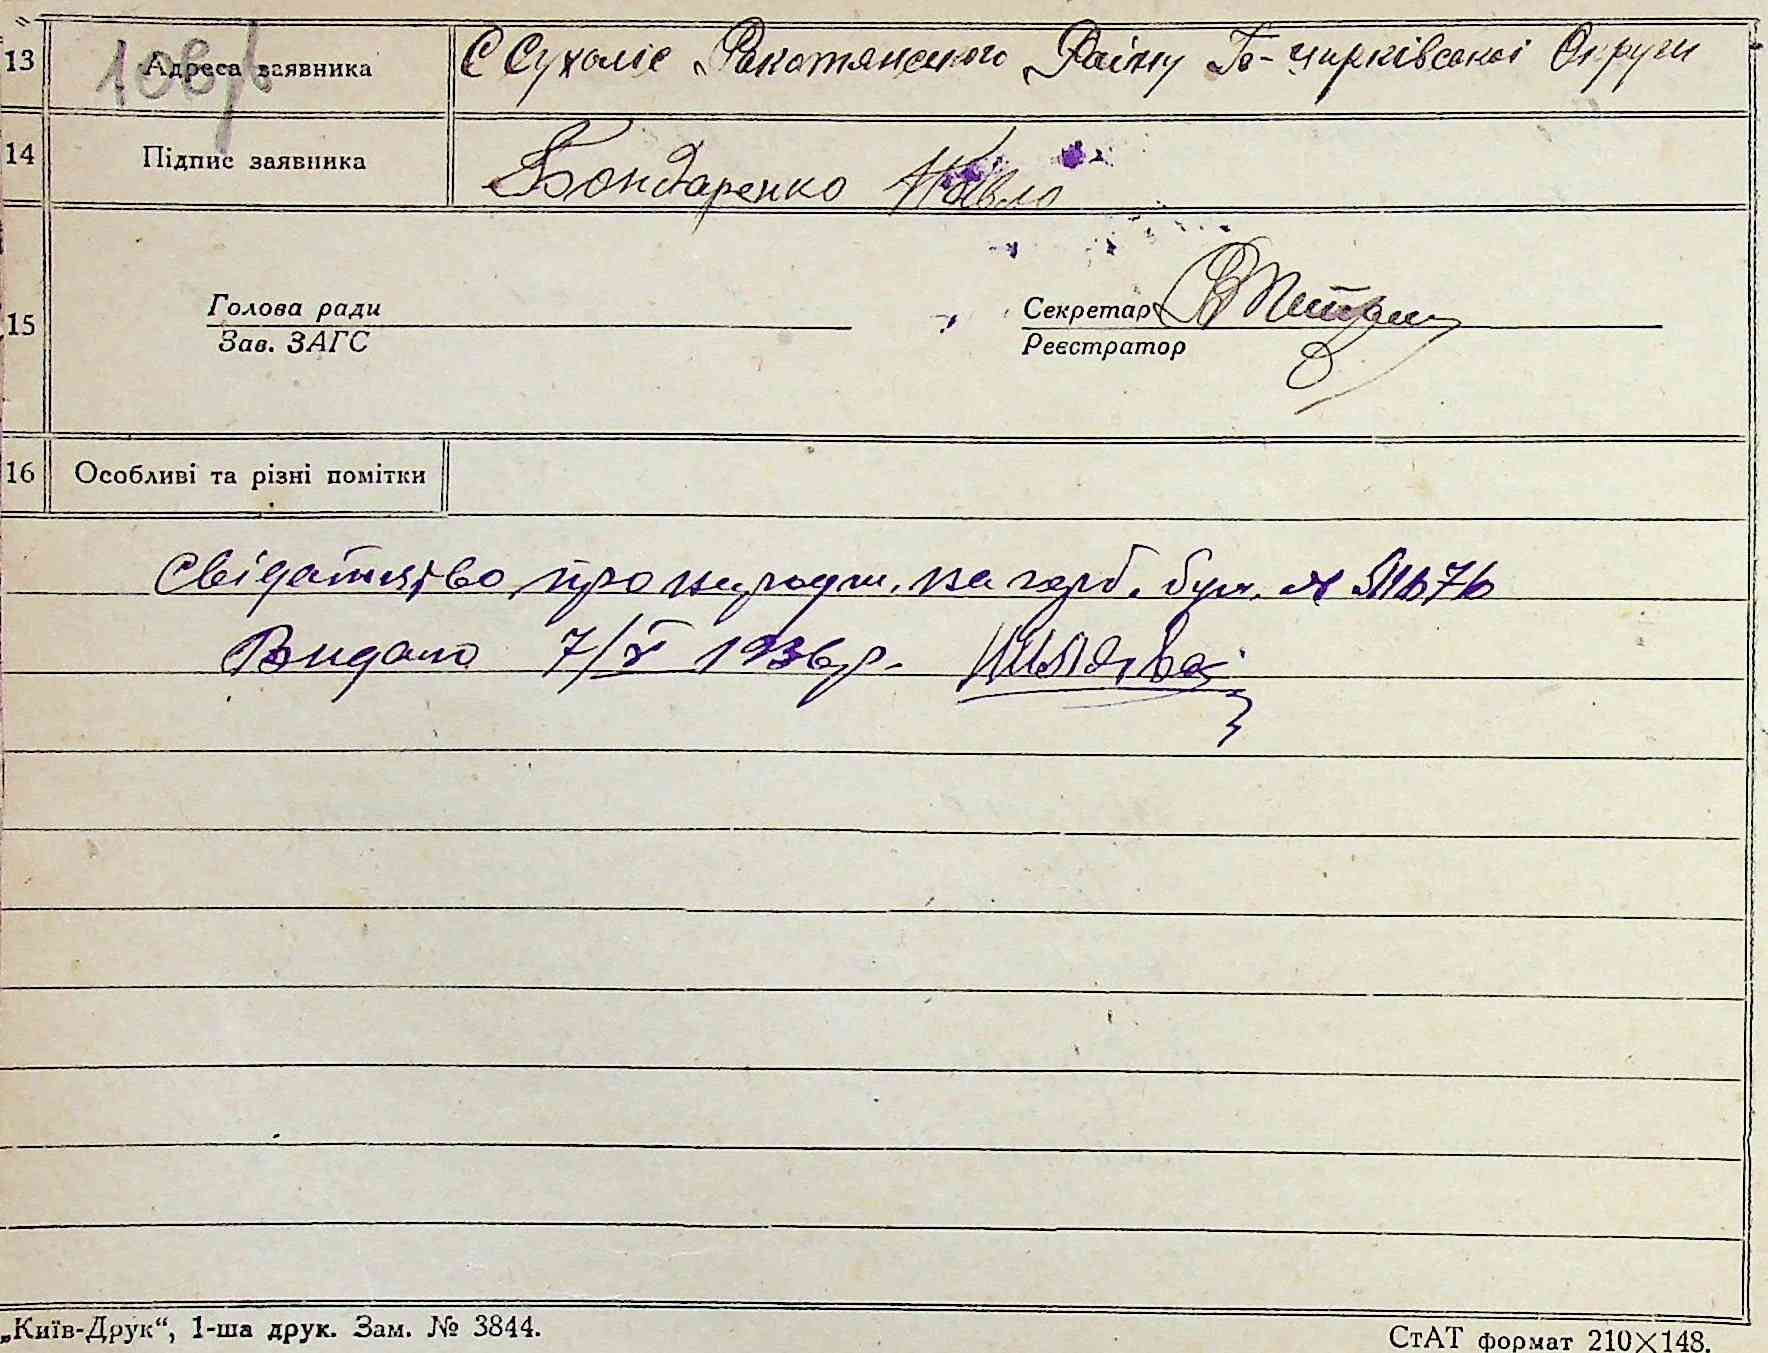 13 Адреса заявника С Сухоліс Рокотянського Раіну Б-Чирківської Округи
14 Підпис заявника Бондаренко Павло
15 Голова ради Секретар
Зав. ЗАГС Реєстратор
16 Особливі та різні помітки
Свідатство про народж. на герб. бум. №
Видано 7/V 1936 р.
„Київ-Друк“, 1-ша друк. Зам. № 3844.
СтАТ формат 210×148.